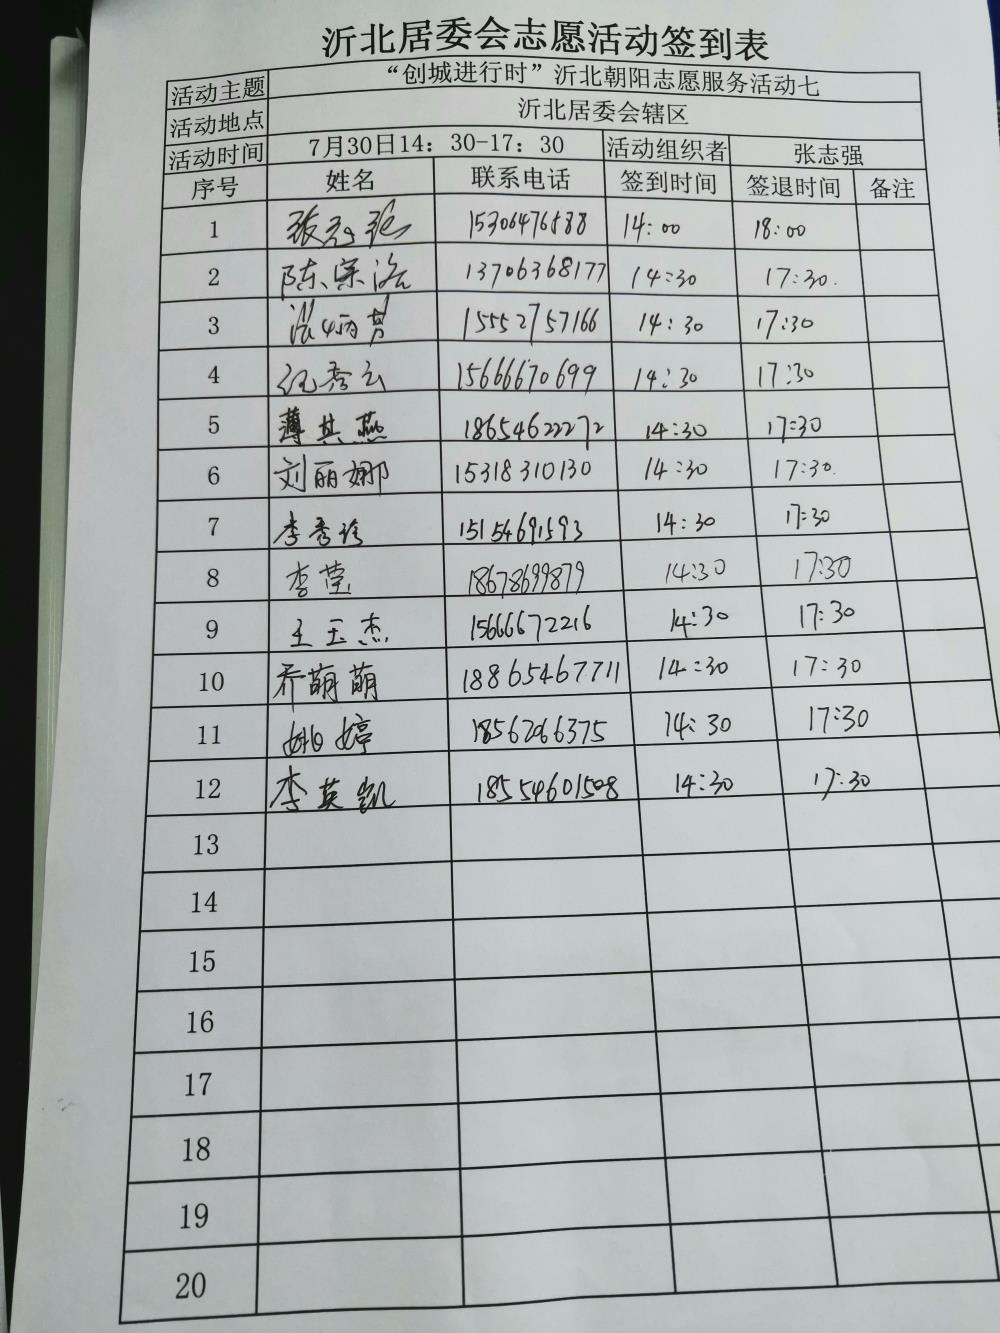 沂北居委会志愿活动签到表
活动主题 “创城进行时”沂北朝阳志愿服务活动七
活动地点 沂北居委会辖区
活动时间 7月30日14：30-17：30 活动组织者 张志强
序号 姓名 联系电话 签到时间 签退时间 备注
1 张志强 15306476588 14:00 18:00
2 陈宗浩 13706368177 14:30 17:30.
3 15552757166 14:30 17:30
4 秀云 15666670699 14:30 17:30
5 薄其燕 18654622272 14:30 17:30
6 刘丽娜 15318310130 14:30 17:30.
7 李秀珍 15154691593 14:30 17:30
8 李莹 18678699879 14:30 17:30
9 王玉杰 15666672216 14:30 17:30
10 乔萌萌 18865467711 14:30 17:30
11 姚婷 18562066375 14:30 17:30
12 李英凯 18554601508 14:30 17:30
13
14
15
16
17
18
19
20